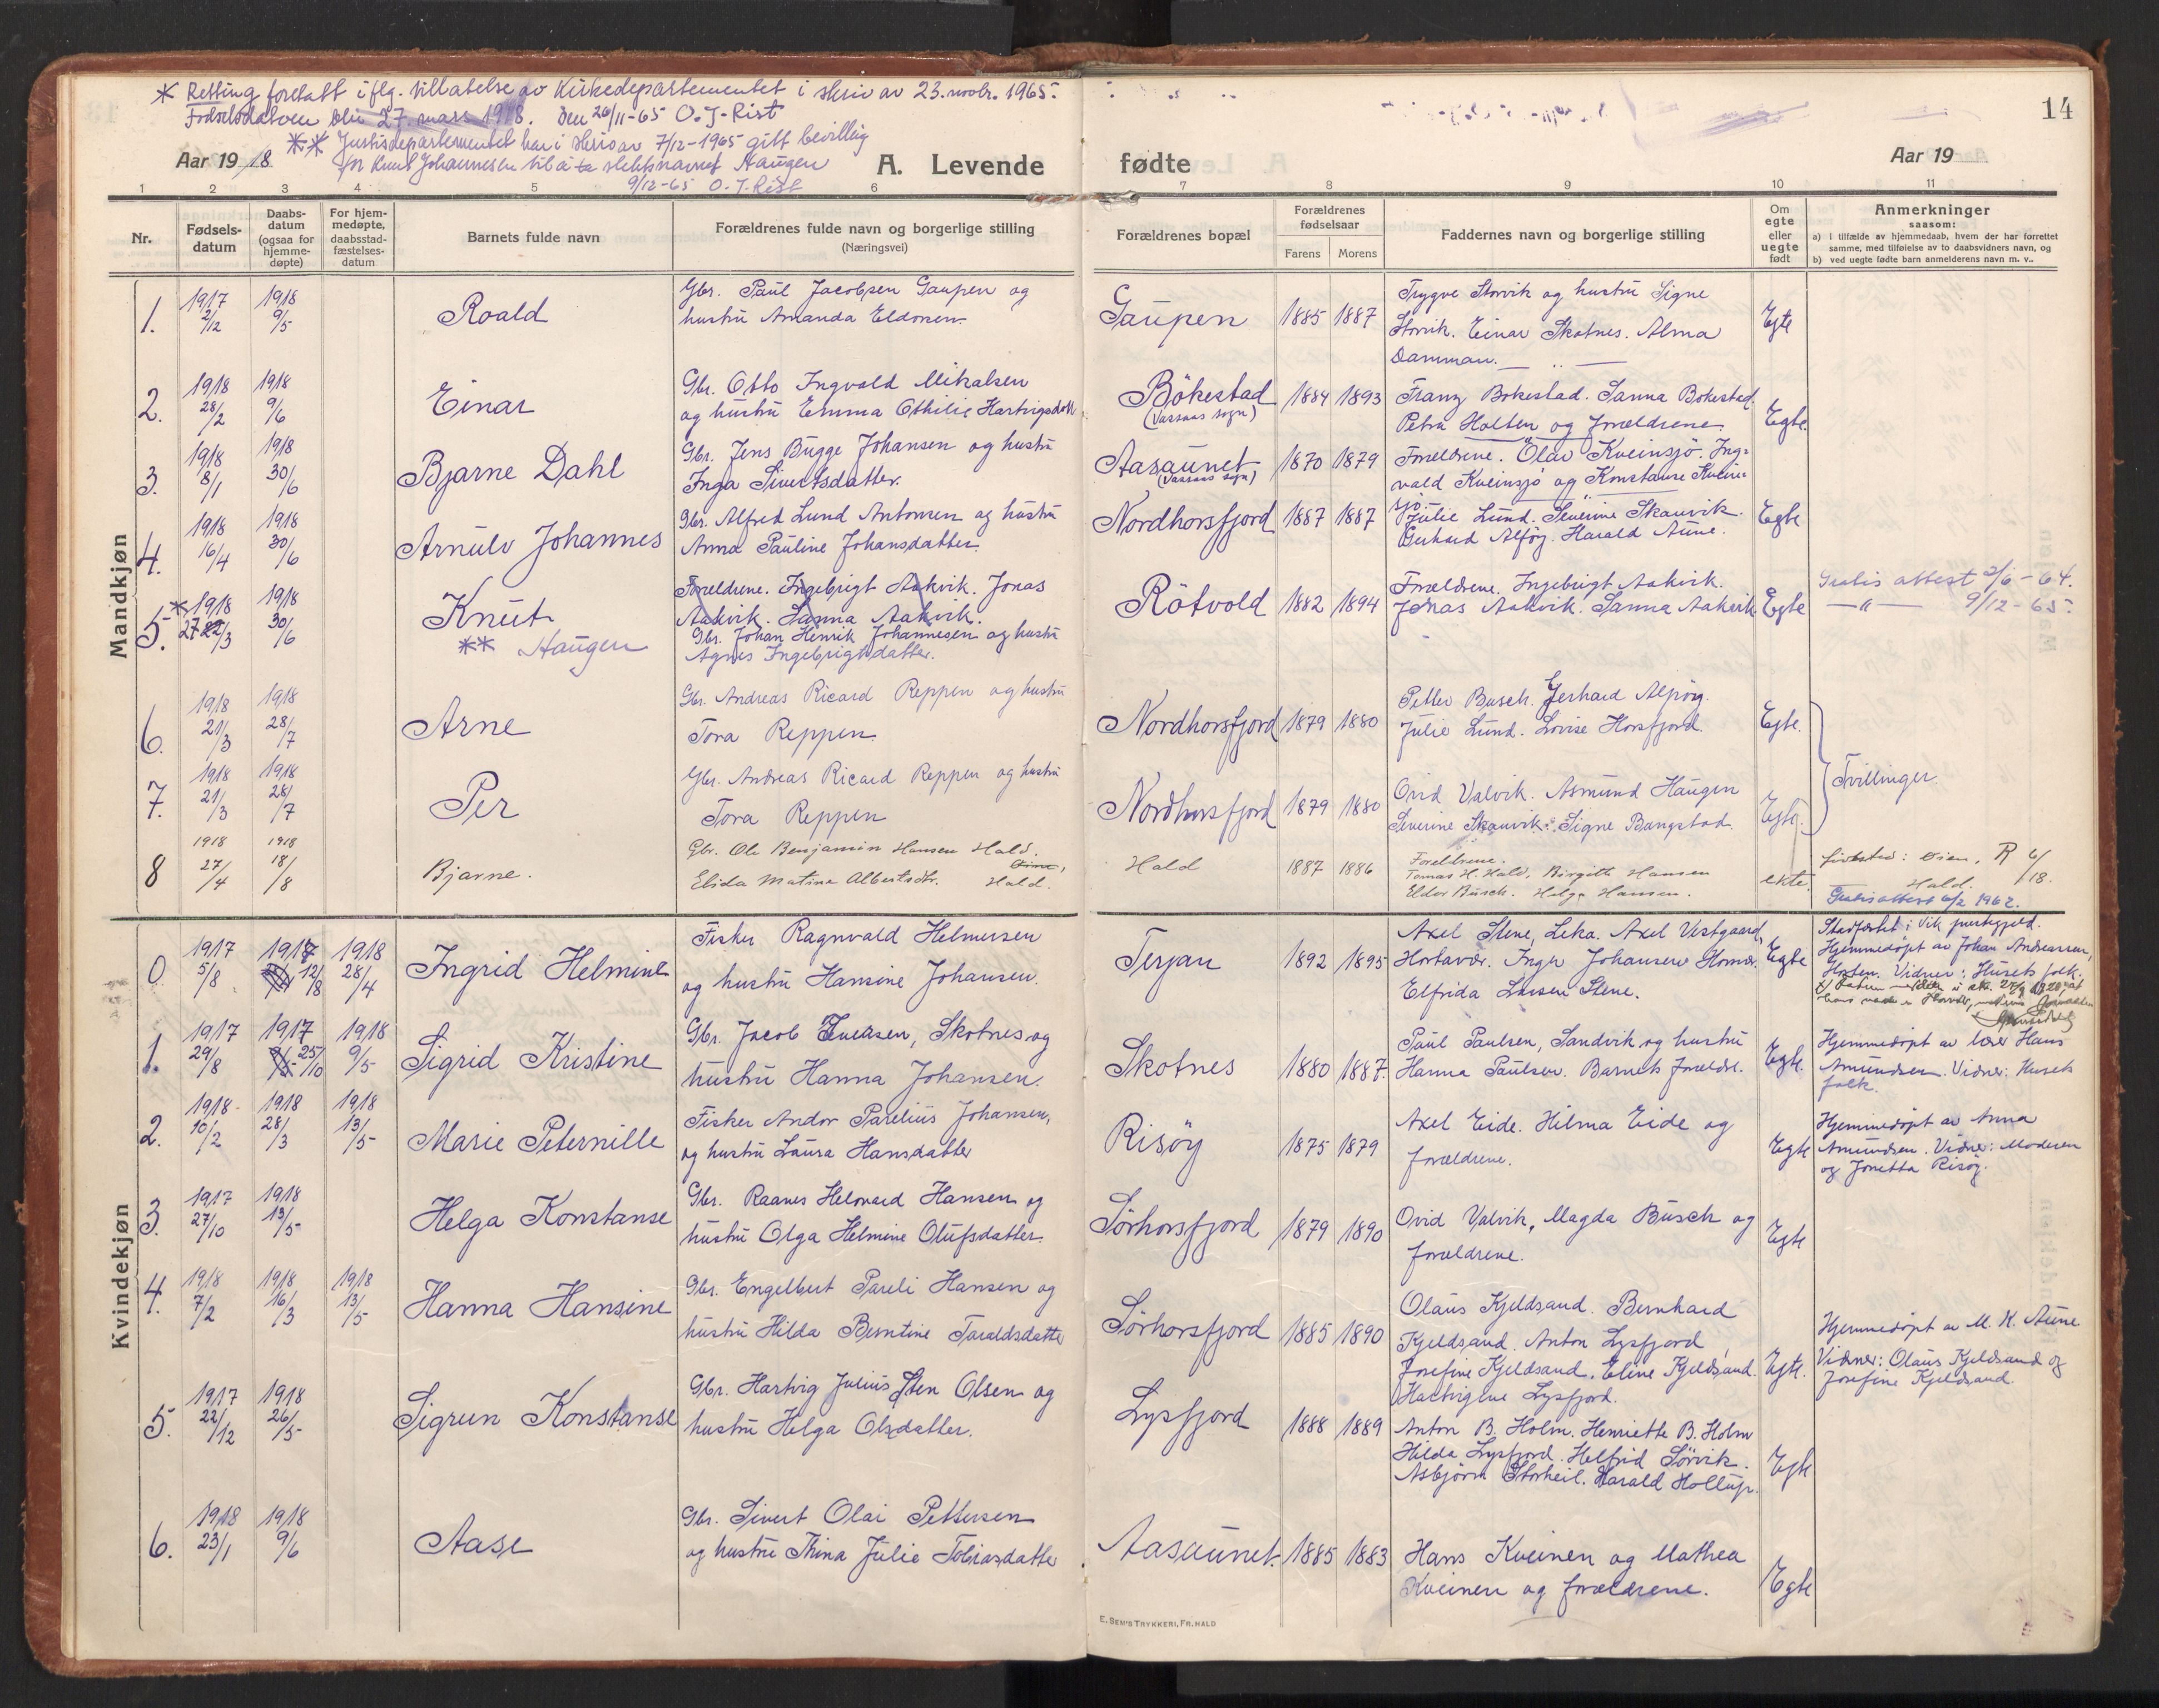 * Retting foretatt iflg. tillatelse av Kirkedepartementet i skriv av 23. novbr. 1965.
Fødselsdatoen blir 27. mars 1918. Den 26/11-65 O. J. Rist
** Justisdepartementet har i skriv av 7/12-1965 gitt bevilling
for Knut Johannesen til å ta slektsnavnet Haugen
9/12-65 O. J. Rist
14
Aar 1918.
A. Levende
fødte
Aar 19
1 2 3 4 5 6 7 8 9 10 11
Nr.
Fødsels-
datum
Daabs-
datum
(ogsaa for
hjemme-
døpte)
For hjem-
medøpte,
daabsstad-
fæstelses-
datum
Barnets fulde navn
Forældrenes fulde navn og borgerlige stilling
(Næringsvei)
Forældrenes bopæl
Forældrenes
fødselsaar
Farens Morens
Faddernes navn og borgerlige stilling
Om
egte
eller
uegte
født
Anmerkninger
saasom:
a) i tilfælde av hjemmedaab, hvem der har forrettet
samme, med tilføielse av to daabsvidners navn, og
b) ved uegte fødte barn anmelderens navn m. v..
Mandkjøn
1. 1917 2/12 1918 9/5 Roald
Gbr. Paul Jacobsen Gaupen og
hustru Amanda Eldonen.
Gaupen 1885 1887
Trygve Storvik og hustru Signe
Storvik. Einar Skotnes. Alma
Damman.
Egte
2. 1918 28/2 1918 9/6 Einar
Gbr. Otto Ingvald Mikalsen
og hustru Emma Othilie Hartvigsdatt
Bökestad
(Vassaas sogn)
1884 1893
Franz Bökestad. Sanna Bökestad.
Petra Holten og Forældrene.
Egte
3. 1918 8/1 1918 30/6 Bjarne Dahl
Gbr. Jens Bugge Johansen og hustru
Inga Sivertsdatter.
Aasaunet
(Vassaas sogn)
1870 1879
Forældrene. Olav Kveinsjö. Ing-
vald Kveinsjö og Konstanse Kvein-
sjö.
4. 1918 16/4 1918 30/6 Arnulv Johannes
Gbr. Alfred Lund Antonsen og hustru
Anna Pauline Johansdatter.
Nordhorsfjord 1887 1887
Julie Lund. Severine Skauvik.
Gerhard Alföy. Harald Aune.
Egte
5. * 1918 27 22/3 1918 30/6 Knut
** Haugen
Foreldrene. Ingebrigt Aakvik. Jonas
Aakvik. Sanna Aakvik.
Gbr. Johan Henrik Johannesen og hustru
Agnes Ingebrigtsdatter.
Rötvold 1882 1894
Forældrene. Ingebrigt Aakvik.
Jonas Aakvik. Sanna Aakvik
Egte
Gratis attest 2/6-64.
—"— 9/12-65.
6. 1918 21/3 1918 28/7 Arne
Gbr. Andreas Ricard Reppen og hustru
Tora Reppen.
Nordhorsfjord 1879 1880
Petter Busch. Gerhard Alföy.
Julie Lund. Lovise Horsfjord.
Egte.
7. 1918 21/3 1918 28/7 Per
Gbr. Andreas Ricard Reppen og hustru
Tora Reppen
Nordhorsfjord 1879 1880
Ovid Valvik. Asmund Haugen
Severine Skauvik. Signe Bangstad.
Egte.
Tvillinger.
8 1918 27/4 1918 18/8 Bjarne.
Gbr. Ole Benjamin Hansen Hald.
Elida Matine Albertsdtr. Hald.
Hald 1887 1886
Foreldrene.
Tomas H. Hald. Birgith Hansen
Eldor Busch. Helga Hansen.
ekte.
fødested: Øien. R 6/18.
Hald.
Gratisattest 6/2 1962.
Kvindekjøn
0. 1917 5/8 1917 12/8 1918 28/4 Ingrid Helmine
Fisker Ragnvald Helmersen
og hustru Hansine Johansen.
Terjan 1892 1895
Axel Stene, Leka. Axel Vestgaard,
Hortavær. Inger Johansen Hornær.
Elfrida Larsen Stene.
Egte
Stadfæstet i Vik prestegjeld.
Hjemmedöpt av Johan Andreassen,
Horten. Vidner: Husets folk.
1. 1917 29/8 1917 25/10 1918 9/5 Sigrid Kristine
Gbr. Jacob Iversen, Skotnes og
hustru Hanna Johansen.
Skotnes 1880 1887.
Paul Paulsen, Sandvik og hustru
Hanna Paulsen. Barnets foreldre.
Egte.
Hjemmedöpt av lærer Hans
Amundsen. Vidner: Husets
folk.
2. 1918 10/2 1918 28/3 1918 13/5 Marie Peternille
Fisker Andor Parelius Johansen,
og hustru Laura Hansdatter
Risöy 1875 1879
Axel Eide. Hilma Eide og
forældrene.
Egte
Hjemmedöpt av Anna
Amundsen. Vidner: Moderen
og Jonetta Risöy.
3. 1917 27/10 1918 13/5 Helga Konstanse
Gbr. Raanes Helvard Hansen og
hustru Olga Helmine Olufsdatter.
Sörhorsfjord 1879 1890
Ovid Valvik, Magda Busch og
forældrene.
Egte
4. 1918 7/2 1918 16/3 1918 13/5 Hanna Hansine
Gbr. Engelbert Pareli Hansen og
hustru Hilda Berntine Taraldsdatter
Sörhorsfjord 1885 1890
Olaus Kjeldsand. Bernhard
Kjeldsand. Anton Lysfjord
Josefine Kjeldsand. Eline Kjeldsand.
Hartvigine Lysfjord.
Egte.
Hjemmedöpt av M. K. Aune.
Vidner: Olaus Kjeldsand og
Josefine Kjeldsand.
5. 1917 22/12 1918 26/5 Sigrun Konstanse
Gbr. Hartvig Julius Sten Olsen og
hustru Helga Olsdatter.
Lysfjord 1888 1889
Anton B. Holm. Henriette B. Holm
Hilda Lysfjord. Helfrid Sörvik.
Asbjörn Storheil. Harald Hollup.
Egte
6. 1918 23/1 1918 9/6 Aase
Gbr. Sivert Olai Pettersen
og hustru Thina Julie Tobiasdatter
Aasaunet. 1885 1883
Hans Kveinen og Mathea
Kveinen og forældrene.
Egte
E. SEM'S TRYKKERI, FR.HALD